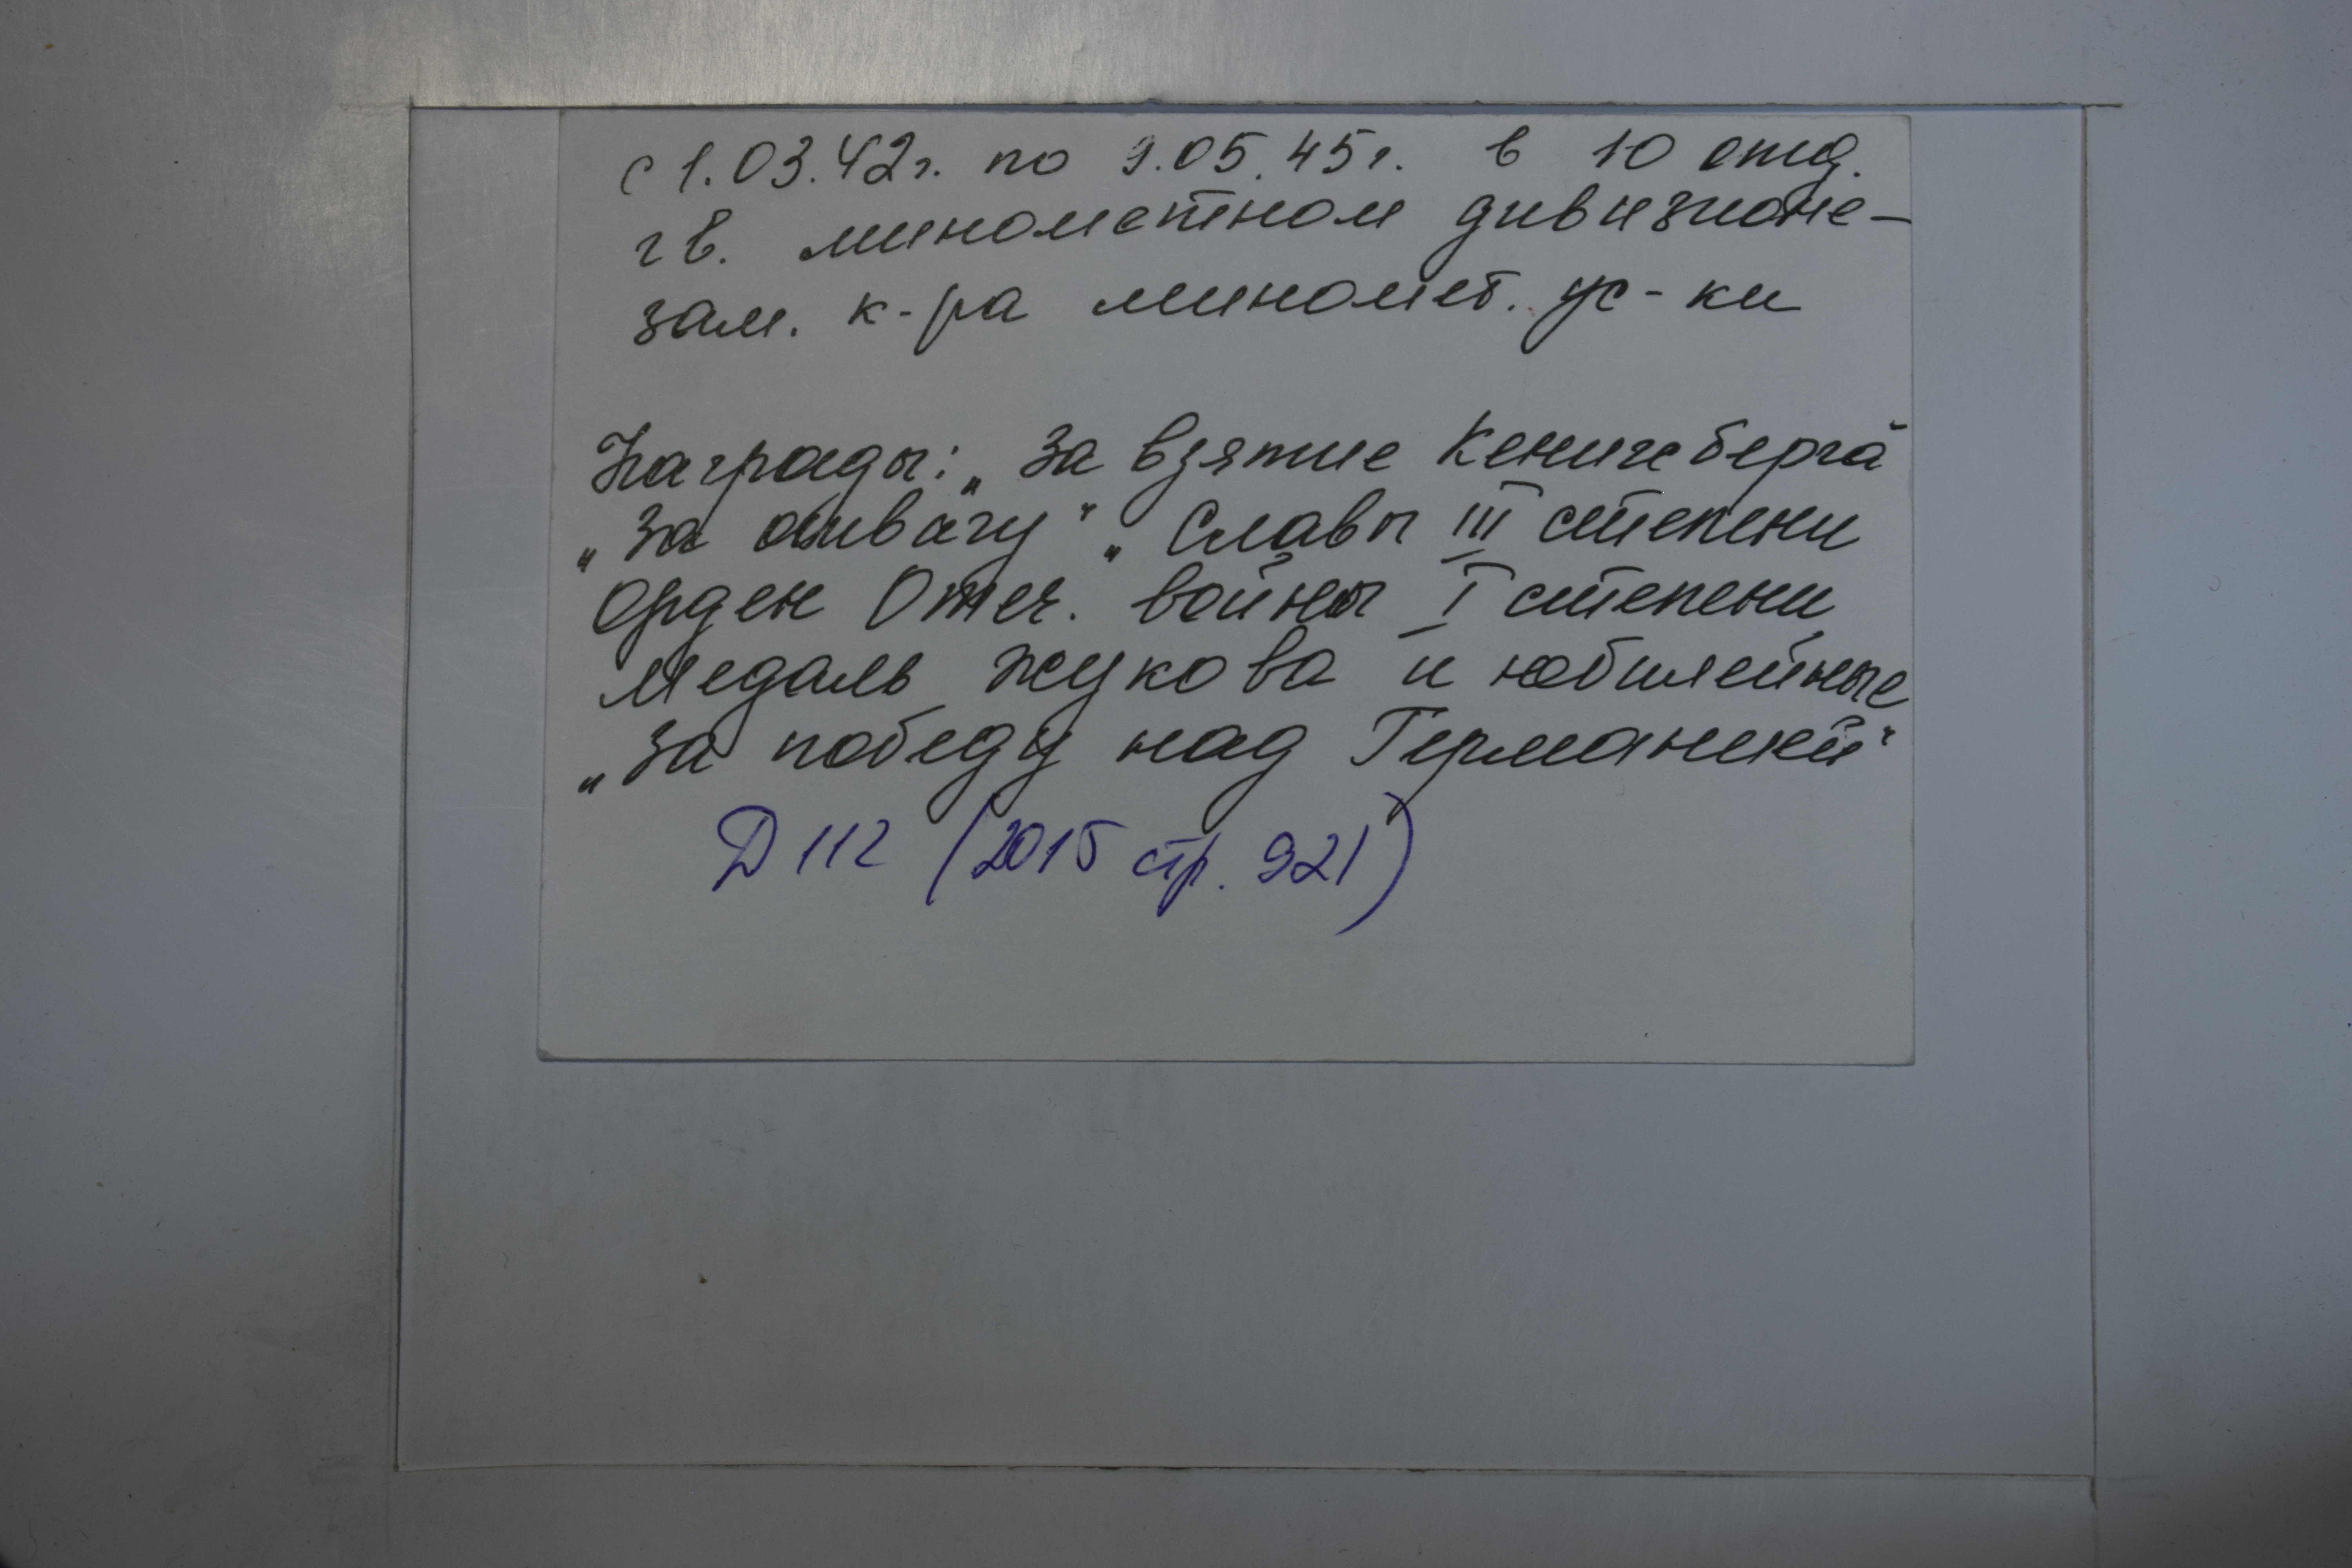 с 1.03.42г. по 9.05.45г. в 10 отд.
гв. минометном дивизионе –
зам. к-ра миномет. ус-ки
Награды: „За взятие Кенигсберга"
„За отвагу" „Славы III степени
Орден Отеч. войны I степени,
медаль Жукова и юбилейные
„За победу над Германией"
Д 112 (2015 стр. 921)